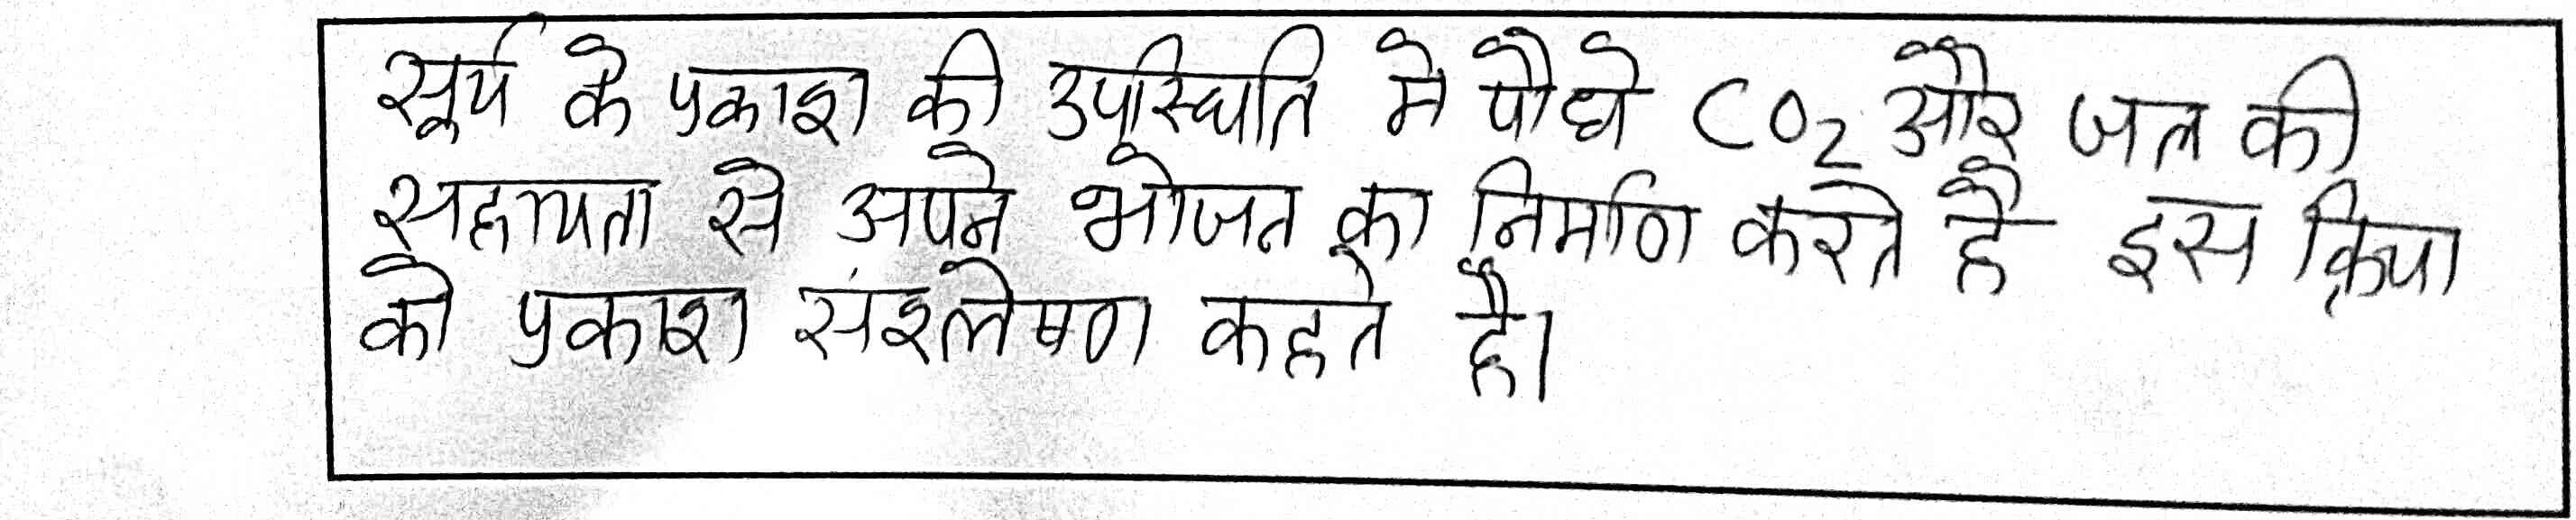 सूर्य के प्रकाश की उपस्थिति मे पौधे CO₂ और जल की
सहायता से अपने भोजन का निर्माण करते है इस क्रिया
को प्रकाश संश्लेषण कहते है।